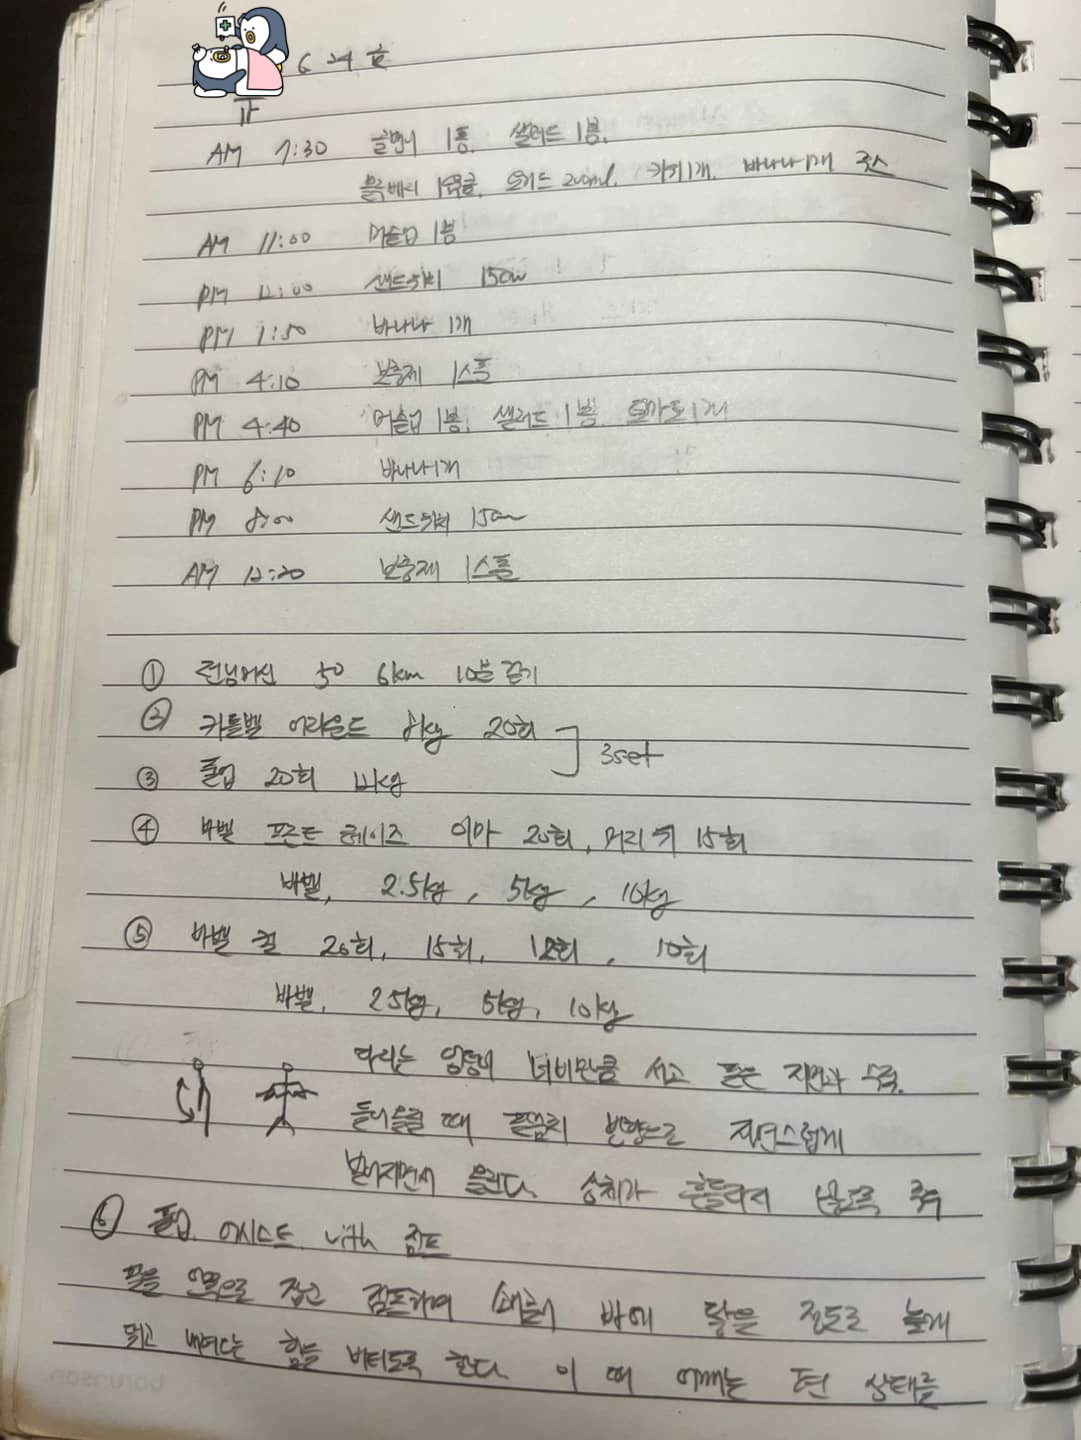 6 24
AM 7:30 1통. 샐러드 1봉.
200ml. 키위1개. 바나나1개
AM 11:00 머슬업 1봉
PM 12:00 샌드위치 15cm
PM 1:50 바나나 1개
PM 4:10 보충제 1스픈
PM 4:40 머슬업 1봉. 샐러드 1봉. 토마토1개
PM 6:10 바나나1개
PM 8:00 샌드위치 15cm
AM 12:20 보충제 1스픈
① 런닝머신 50 6km 10분 걷기
② 커틀벨 어라운드 8kg 20회
3set
③ 풀업 20회
④ 바벨 프론트 레이즈 이마 20회, 머리 위 15회
바벨, 2.5kg, 5kg, 10kg
⑤ 바벨 컬 20회, 15회, 12회, 10회
바벨, 2.5kg, 5kg, 10kg
다리는 엉덩이 너비만큼 서고 팔은 지면과 수직.
들어올릴 때 팔꿈치 방향으로 자연스럽게
벌어지면서 올린다. 상체가 흔들리지 않도록 주의
⑥ 풀업 어시스트 with 점프
팔을 안쪽으로 잡고 점프하며 쇄골이 바에 닿을 정도로 높게
뛰고 내려오는 힘을 버티도록 한다. 이 때 어깨는 편 상태를